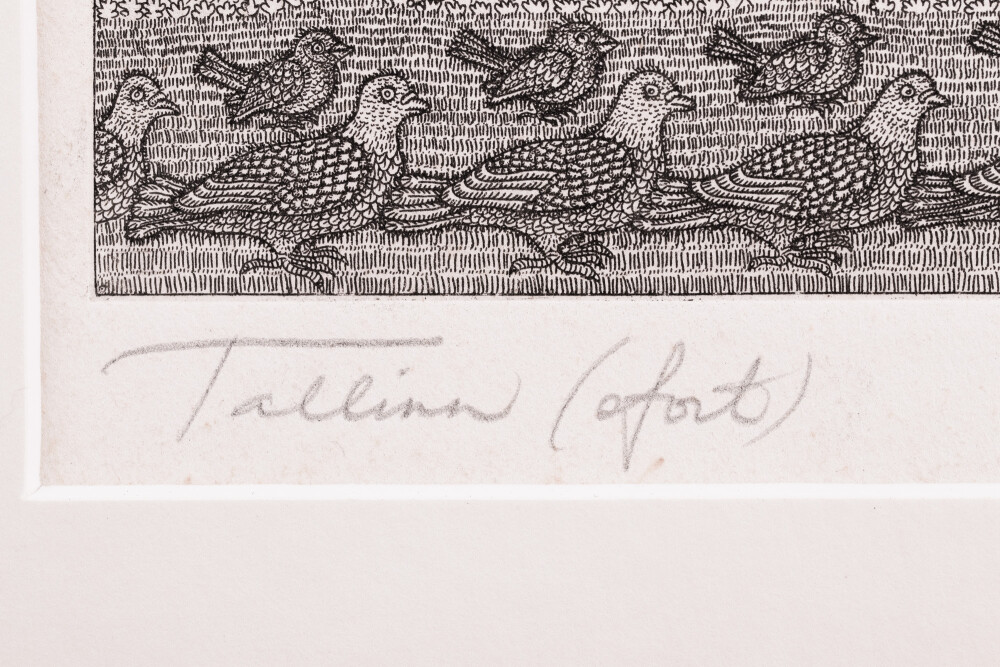 Tallinn (ofort)